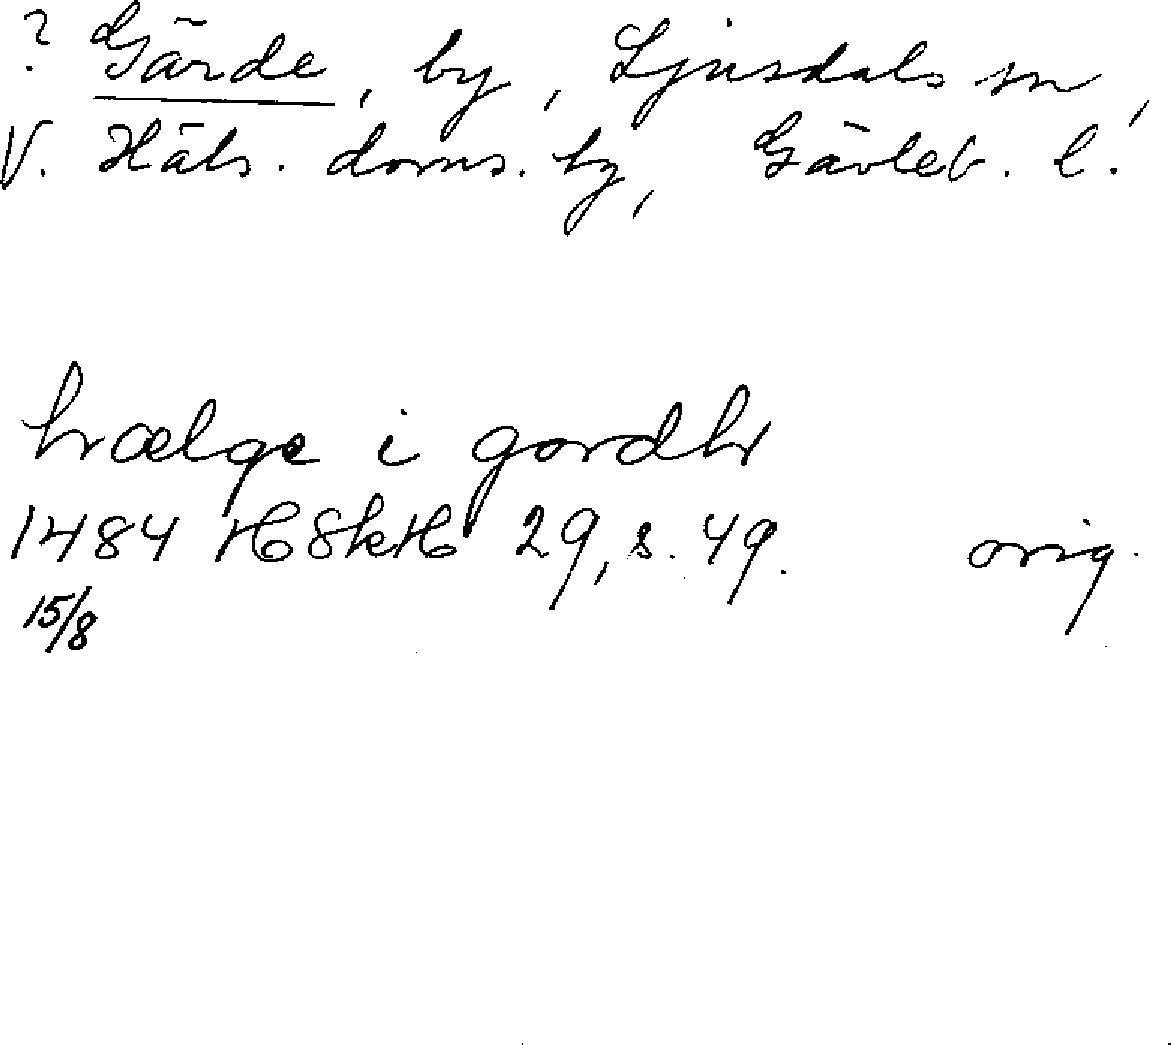 ? Gärde, by, Ljusdals sn,
V. Häls. doms. by, Gävleb. l.
hrælge i gordhr
1484 HSkH 29, s. 49. orig.
15/8